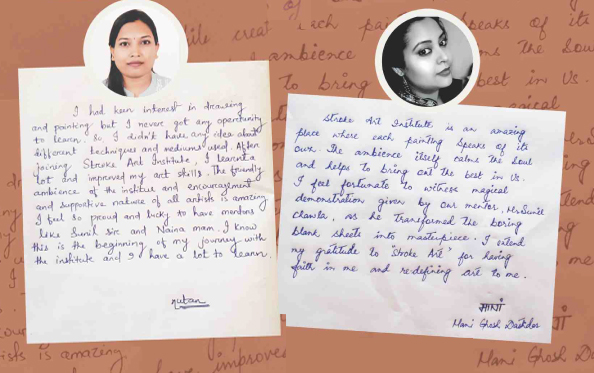 I had keen interest in drawing
and painting but I never got any oportunity
to learn. So I didn't have any idea about
different techniques and mediums used. After
joining Stroke Art Institute, I learnt a
lot and improved my art skills. The friendly
ambience of the institue and encouragement
and supportive nature of all artists is amazing
I feel so proud and lucky to have mentors
like Sunil Sir and Naina mam. I know
this is the beginning of my journey with
the institute and I have a lot to learn.
nutan
Stroke Art Institute is an amazing
place where each painting speaks of its
own. The ambience itself calms the soul
and helps to bring out the best in us.
I feel fortunate to witness magical
demonstration given by our mentor, Mr Sunil
chawla, as he transformed the boring
blank sheets into masterpiece. I extend
my gratitude to "Stroke Art" for having
faith in me and re-defining art to me.
मानी
Mani Ghosh Dastidar